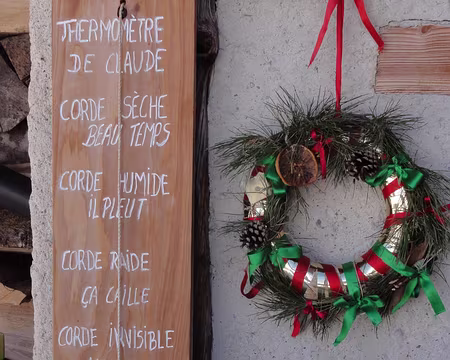 THERMOMÈTRE
DE CLAUDE
CORDE SÈCHE
BEAU TEMPS
CORDE HUMIDE
IL PLEUT
CORDE RAIDE
ÇA CAILLE
CORDE INVISIBLE